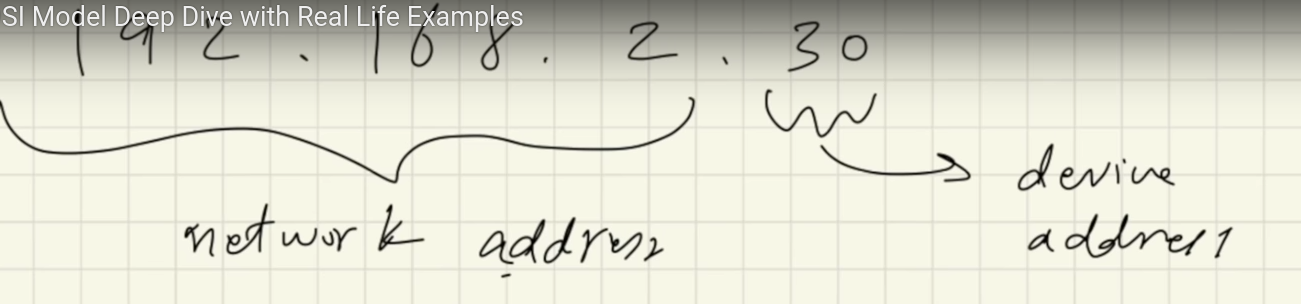 SI Model Deep Dive with Real Life Examples
192.168.2.30
network address
device address